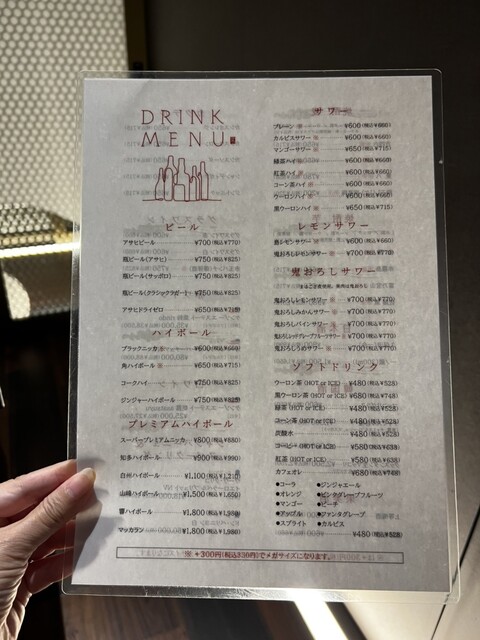 DRINK
MENU
ビール
アサヒビール ¥700(税込¥770)
瓶ビール(アサヒ) ¥750(税込¥825)
瓶ビール(サッポロ) ¥750(税込¥825)
瓶ビール(クラシックラガー) ¥750(税込¥825)
アサヒドライゼロ ¥650(税込¥715)
ハイボール
ブラックニッカ※ ¥600(税込¥660)
角ハイボール※ ¥650(税込¥715)
コークハイ ¥750(税込¥825)
ジンジャーハイボール ¥750(税込¥825)
プレミアムハイボール
スーパープレミアムニッカ ¥800(税込¥880)
知多ハイボール ¥900(税込¥990)
白州ハイボール ¥1,100(税込¥1,210)
山崎ハイボール ¥1,500(税込¥1,650)
響ハイボール ¥1,800(税込¥1,980)
マッカラン ¥1,800(税込¥1,980)
サワー
プレーン※ ¥600(税込¥660)
カルピスサワー※ ¥600(税込¥660)
マンゴーサワー※ ¥650(税込¥715)
緑茶ハイ※ ¥600(税込¥660)
紅茶ハイ※ ¥600(税込¥660)
コーン茶ハイ※ ¥600(税込¥660)
ウーロンハイ※ ¥600(税込¥660)
黒ウーロンハイ※ ¥650(税込¥715)
レモンサワー
※ ¥600(税込¥660)
鬼おろしレモンサワー※ ¥700(税込¥770)
鬼おろしサワー
鬼おろしレモンサワー※ ¥700(税込¥770)
鬼おろしみかんサワー※ ¥700(税込¥770)
鬼おろしパインサワー※ ¥700(税込¥770)
鬼おろしグレープフルーツサワー※ ¥700(税込¥770)
鬼おろしうめサワー※ ¥700(税込¥770)
ソフトドリンク
ウーロン茶(HOT or ICE) ¥480(税込¥528)
黒ウーロン茶(HOT or ICE) ¥680(税込¥748)
緑茶(HOT or ICE) ¥480(税込¥528)
コーン茶(HOT or ICE) ¥480(税込¥528)
炭酸水 ¥480(税込¥528)
コーヒー(HOT or ICE) ¥580(税込¥638)
紅茶(HOT or ICE) ¥580(税込¥638)
カフェオレ ¥680(税込¥748)
●コーラ ●ジンジャエール
●オレンジ ●ピンクグレープフルーツ
●マンゴー ●ピーチ
●アップル ●ファンタグレープ
●スプライト ●カルピス
¥480(税込¥528)
※+300円(税込330円)でメガサイズになります。